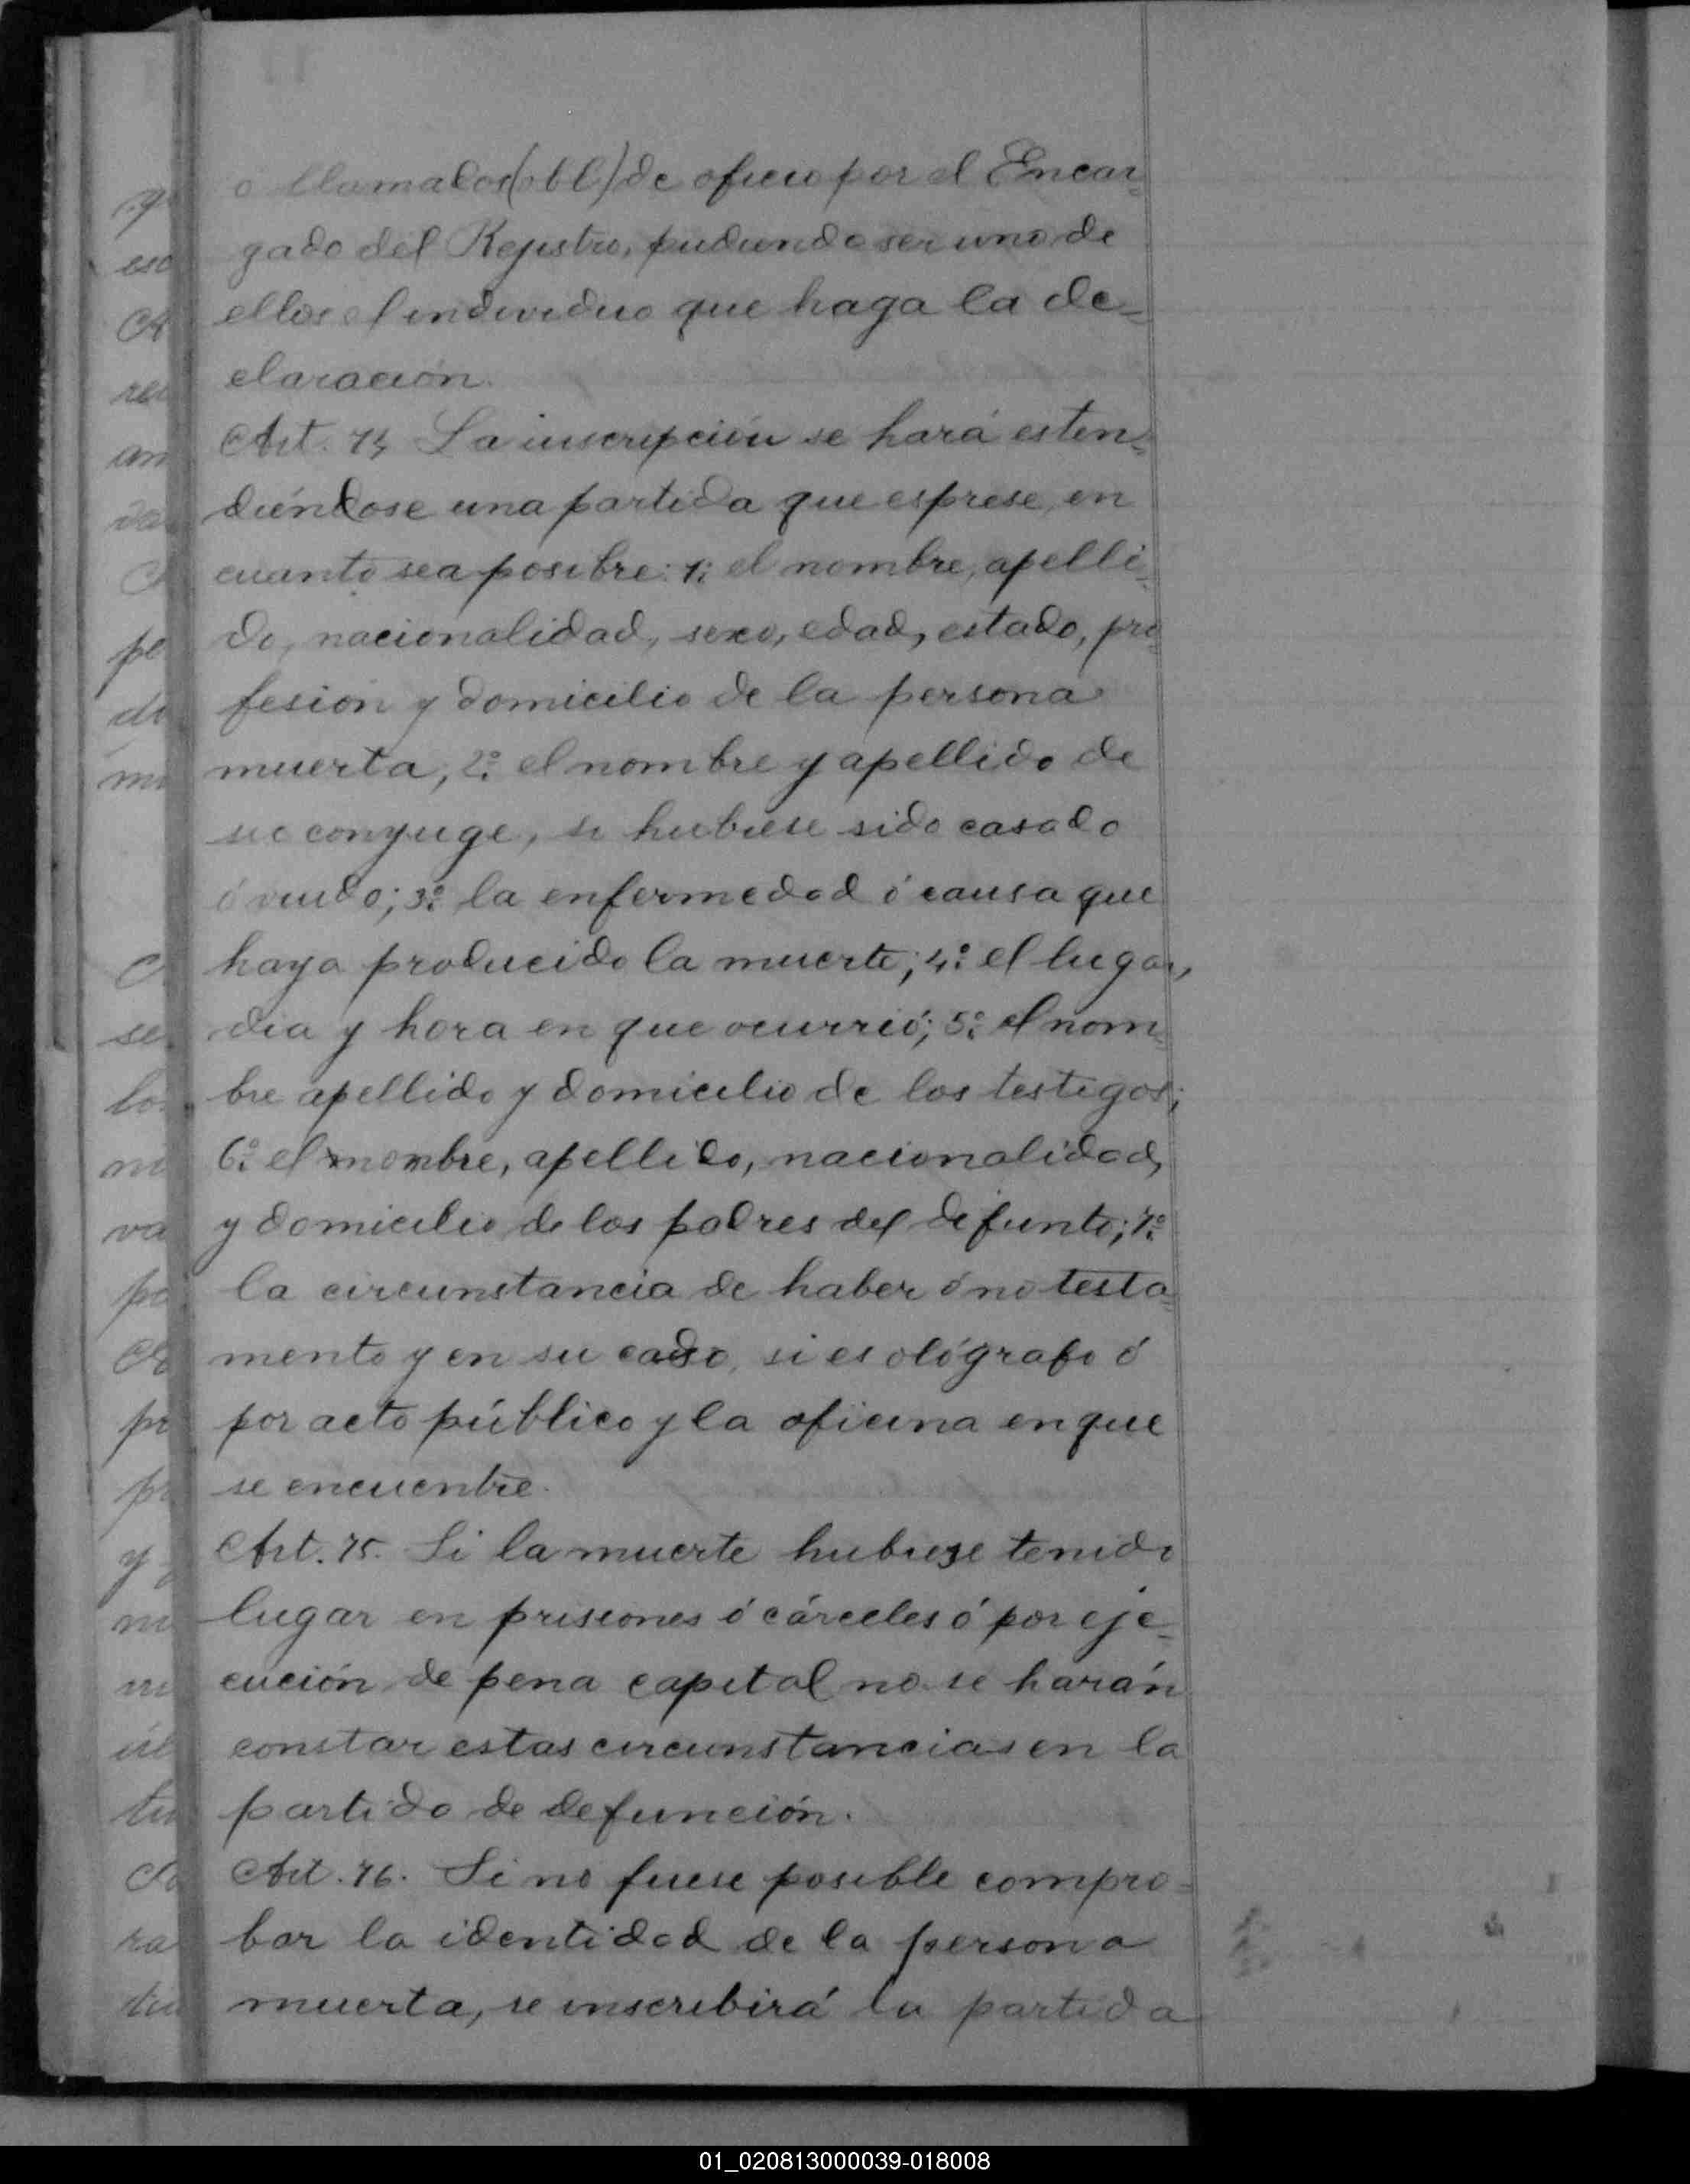 ó llamados(obl) de oficio por el Encar=
gado del Rejistro, pudiendo ser uno de
ellos el individuo que haga la de=
claración.
Art. 74 La inscripción se hará esten=
diéndose una partida que esprese, en
cuanto sea posibre: 1º el nombre, apelli=
do, nacionalidad, sexo, edad, estado, pro=
fesion y domicilio de la persona
muerta, 2º el nombre y apellido de
su conyuge, si hubiese sido casado
ó viudo; 3º la enfermedad ó causa que
haya producido la muerte; 4º el lugar,
dia y hora en que ocurrió; 5º el nom=
bre apellido y domicilio de los testigos;
6º el nombre, apellido, nacionalidad,
y domicilio de los padres del difunto; 7º
la circunstancia de haber ó no testa=
mento y en su caso, si es ológrafo ó
por acto público y la oficina en que
se encuentre.
Art. 75. Si la muerte hubiese tenido
lugar en prisiones ó cárceles ó por eje=
cución de pena capital no se harán
constar estas circunstancias en la
partida de defunción.
Art. 76. Si no fuese posible compro=
bar la identidad de la persona
muerta, se inscribirá la partida
01_020813000039-018008